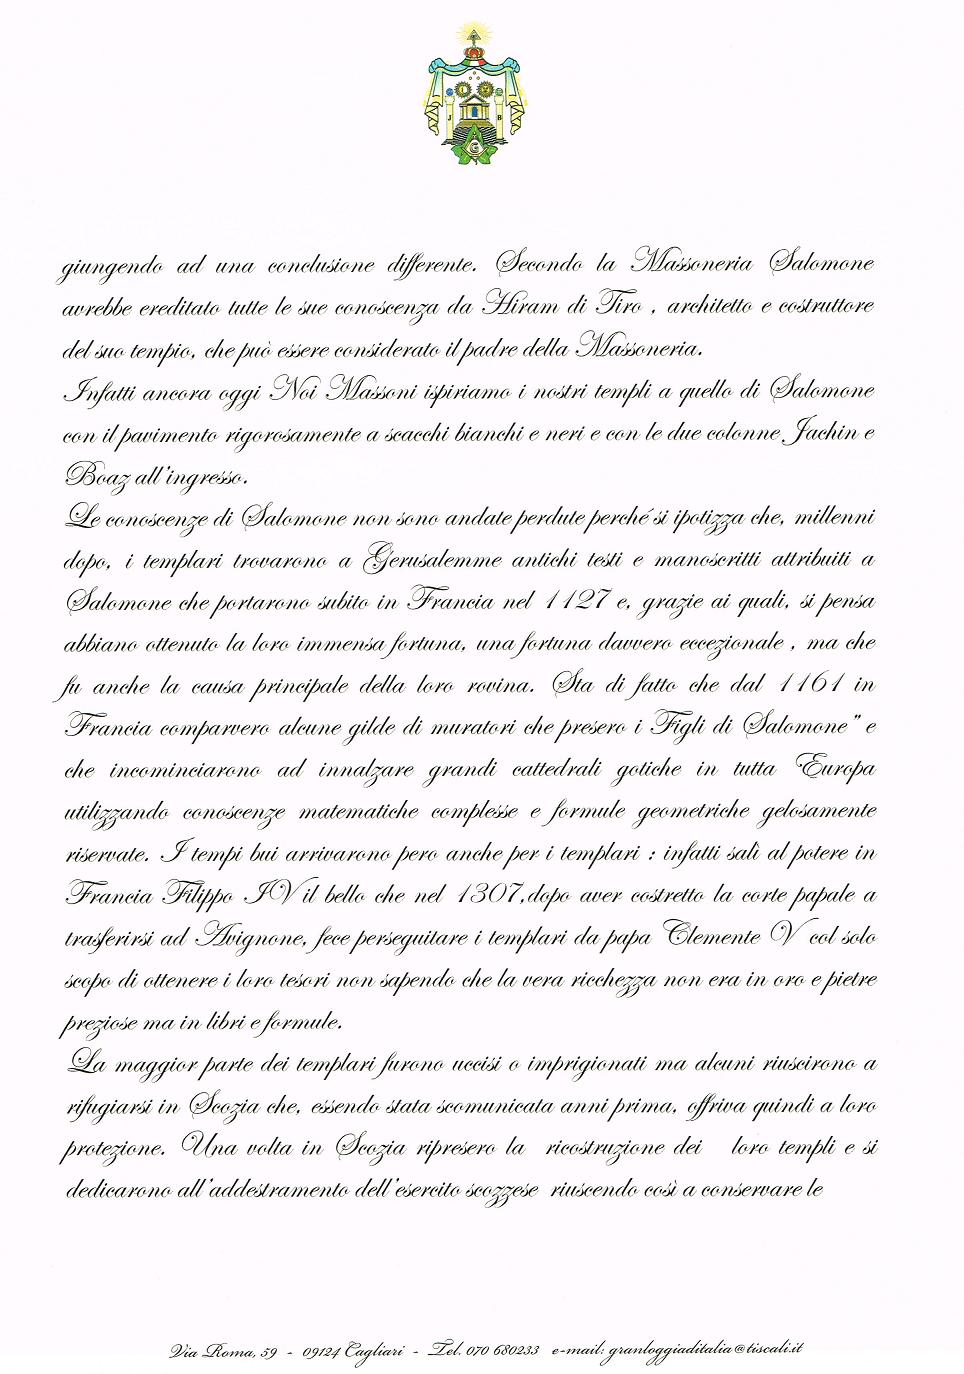 J B
G
giungendo ad una conclusione differente. Secondo la Massoneria Salomone
avrebbe ereditato tutte le sue conoscenza da Hiram di Tiro , architetto e costruttore
del suo tempio, che può essere considerato il padre della Massoneria.
Infatti ancora oggi Noi Massoni ispiriamo i nostri templi a quello di Salomone
con il pavimento rigorosamente a scacchi bianchi e neri e con le due colonne Jachin e
Boaz all'ingresso.
Le conoscenze di Salomone non sono andate perdute perché si ipotizza che, millenni
dopo, i templari trovarono a Gerusalemme antichi testi e manoscritti attribuiti a
Salomone che portarono subito in Francia nel 1127 e, grazie ai quali, si pensa
abbiano ottenuto la loro immensa fortuna, una fortuna davvero eccezionale , ma che
fu anche la causa principale della loro rovina. Sta di fatto che dal 1161 in
Francia comparvero alcune gilde di muratori che presero i Figli di Salomone" e
che incominciarono ad innalzare grandi cattedrali gotiche in tutta Europa
utilizzando conoscenze matematiche complesse e formule geometriche gelosamente
riservate. I tempi bui arrivarono pero anche per i templari : infatti salì al potere in
Francia Filippo IV il bello che nel 1307,dopo aver costretto la corte papale a
trasferirsi ad Avignone, fece perseguitare i templari da papa Clemente V col solo
scopo di ottenere i loro tesori non sapendo che la vera ricchezza non era in oro e pietre
preziose ma in libri e formule.
La maggior parte dei templari furono uccisi o imprigionati ma alcuni riuscirono a
rifugiarsi in Scozia che, essendo stata scomunicata anni prima, offriva quindi a loro
protezione. Una volta in Scozia ripresero la ricostruzione dei loro templi e si
dedicarono all'addestramento dell'esercito scozzese riuscendo così a conservare le
Via Roma, 59 - 09124 Cagliari - Tel. 070 680233 e-mail: granloggiaditalia@tiscali.it